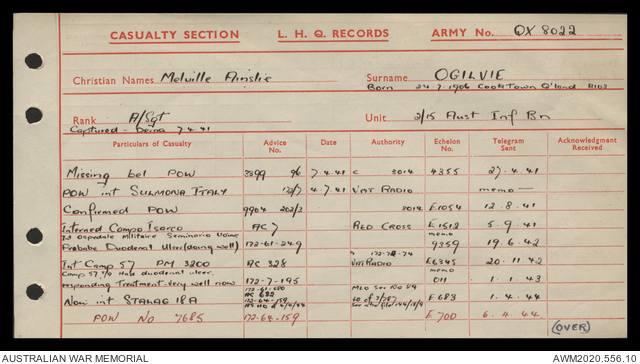 CASUALTY SECTION L. H. Q. RECORDS ARMY No. QX 8022
Christian Names Melville Ainslie Surname OGILVIE
Born 24 7 1906 Cooktown Q'land
Rank A/Sgt Unit 2/15 Aust Inf Bn
Captured - Derna 7 4 41
Particulars of Casualty Advice No. Date Authority Echelon No. Telegram Sent Acknowledgment Received
Missing bel POW 3899 96 7.4.41 C 3014 4355 27.4.41
POW int SULMONA ITALY 172/7 4.7.41 VAT RADIO memo —
Confirmed POW 9904 202/3 3014 E1054 12.8.41
Interned Campo Isarco AC 7 RED CROSS E1512 5.9.41
Ospedale Militaire Seminario Udine memo
Probable Duodenal Ulcer (doing well) 172-61-249 9359 19.6.42
172-78-74
Int Camp 57 PM 3200 AC 328 VAT RADIO E6345 20.11.42
Camp 57 has duodenal ulcer memo
responding treatment very well now 172-7-195 011 1.1.43
172-61-580 MLO Ser No 84
Now int STALAG 18A AC 682 E683 1.4.44
172-64-159
POW No 7685 172-64-159 E700 6.4.44
(OVER)
AUSTRALIAN WAR MEMORIAL AWM2020.556.10